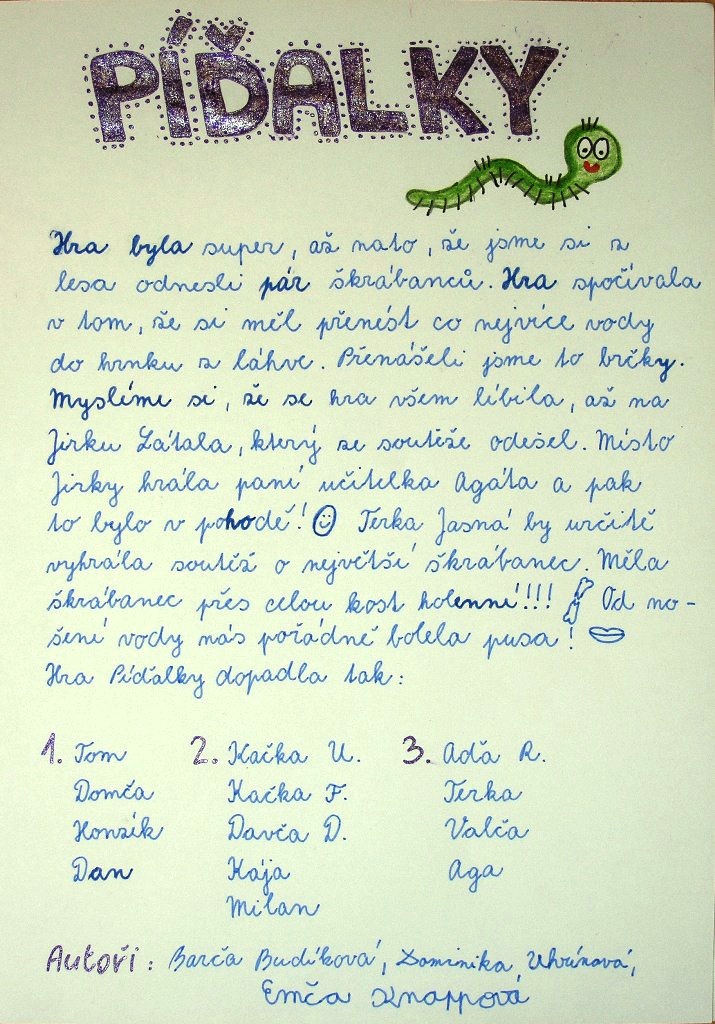 PÍĎALKY
Hra byla super, až nato, že jsme si z
lesa odnesli pár škrábanců. Hra spočívala
v tom, že si měl přenést co nejvíce vody
do hrnku z láhve. Přenášeli jsme to brčky.
Myslíme si, že se hra všem líbila, až na
Jirku Látala, který ze soutěže odešel. Místo
Jirky hrála paní učitelka Agáta a pak
to bylo v pohodě! Terka Jasná by určitě
vyhrála soutěž o největší škrábanec. Měla
škrábanec přes celou kost holenní!!! Od no-
šení vody nás pořádně bolela pusa!
Hra Píďalky dopadla tak:
1. Tom 2. Kačka U. 3. Aďa R.
Domča Kačka F. Terka
Honzík Davča D. Valča
Dan Kája Aga
Milan
Autoři: Barča Budíková, Dominika Uhrinová,
Emča Knappová